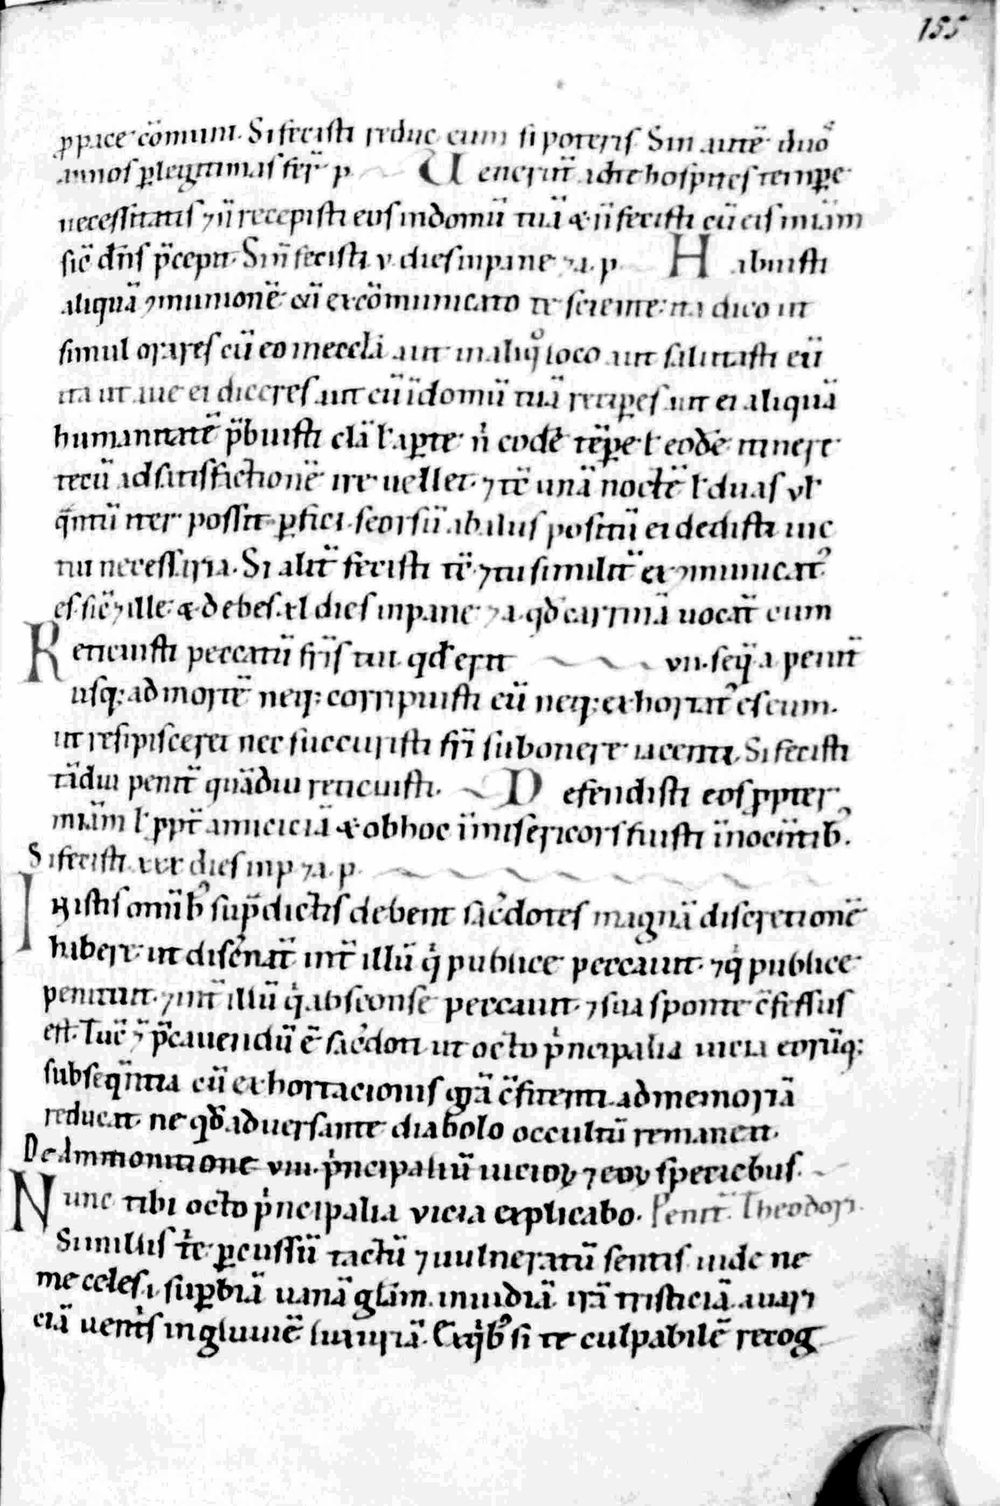 155
ꝓ pace cōmuni. Si fecisti reduc eum si poteris. Sin autē duoꝰ
annos ꝑ legitimas fer̄ p̄ U enerūt ad te hospites tempe
necessitatis ⁊ n̄ recepisti eos in domū tuā & n̄ fecisti cū eis mīam
sic̄ dn̄s p̄cepit. Si n̄ fecisti. v. dies in pane ⁊ a. p̄ H abuisti
aliquā ꝯmunionē cū excōmunicato te sciente. ita dico ut
simul orares cū eo in eccl̄a aut in aliqͦ loco aut salutasti eū
ita ut aue ei diceres aut cū ī domū tuā reciꝑes aut ei aliquā
humanitatē p̄buisti clā ł aꝑte n̄ eodē tēpe ł eodē itinere
tecū ad satisfactionē ire uellet. ⁊ tc̄ unā noctē ł duas vł
q̄ntū iter possit ꝑfici. seorsū ab aliis positū ei dedisti uic
tui necessaria. Si alit̄ fecisti tc̄ ⁊ tu similit̄ exꝯmunicatꝰ
es sic̄ ⁊ ille. & debes. xl dies in pane ⁊ a. qđ carrinā uocat̄ cum
R eticuisti peccatū fr̄is tui. qđ erat vii. seq̄. a penit̄
usq; ad mortē neq; corripuisti eū neq; exhortatꝰ es eum.
ut resipisceret nec succuristi fr̄i sub onere iacenti. Si fecisti
tādiu penit̄ quādiu reticuisti. D efendisti eos ꝓpter
mīam ł ꝓpt̄ amiciciā & ob hoc ī misericors fuisti īnocentibꝰ.
Si fecisti. xxx dies in p̄ ⁊ a. p̄.
I N istis omībꝰ sup̄dictis debent sac̄dotes magnā discretionē
habere. ut discernat̄ int̄ illū q̄ publice peccauit. ⁊ q̄ publice
penituit. ⁊ int̄ illū q̄ absconse peccauit. ⁊ sua sponte c̄fessus
est. Tūc ⁊ p̄cauendū ē sac̄doti ut octo p̄ncipalia uicia eorūq;
subseq̄ntia cū exhortacionis gr̄a c̄fitenti ad memoriā
reducat. ne qđ aduersante diabolo occultū remaneat.
De Ammonitione viii. p̄ncipaliū uicioꝝ ⁊ eoꝝ speciebus.
N unc tibi octo p̄ncipalia vicia explicabo. Penit̄. Theodori.
Si in illis te ꝑcussū tactū ⁊ uulneratū sentis. uide ne
me celes. i. suꝑbiā uanā glīam. inuidiā. irā tristiciā. auari
ciā uentris ingluuiē luxuriā. Ex q̄bꝰ si te culpabilē recog